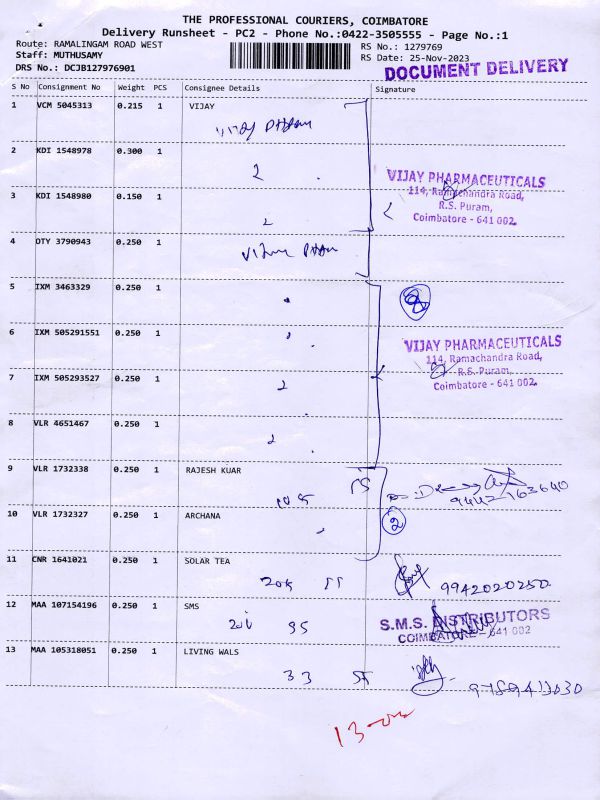 THE PROFESSIONAL COURIERS, COIMBATORE
Delivery Runsheet - PC2 - Phone No.:0422-3505555 - Page No.:1
Route: RAMALINGAM ROAD WEST
RS No.: 1279769
Staff: MUTHUSAMY
RS Date: 25-Nov-2023
DRS No.: DCJB127976901
DOCUMENT DELIVERY
S No Consignment No Weight PCS Consignee Details Signature
1 VCM 5045313 0.215 1 VIJAY
2 KDI 1548978 0.300 1
2
VIJAY PHARMACEUTICALS
114, Ramachandra Road,
R.S. Puram,
Coimbatore - 641 002.
3 KDI 1548980 0.150 1
2
4 OTY 3790943 0.250 1
5 IXM 3463329 0.250 1
8
6 IXM 505291551 0.250 1
VIJAY PHARMACEUTICALS
114, Ramachandra Road,
R.S. Puram,
Coimbatore - 641 002.
7 IXM 505293527 0.250 1
2
8 VLR 4651467 0.250 1
2
9 VLR 1732338 0.250 1 RAJESH KUAR
9442163640
10 VLR 1732327 0.250 1 ARCHANA
2
11 CNR 1641021 0.250 1 SOLAR TEA
9942020250
12 MAA 107154196 0.250 1 SMS
S.M.S. DISTRIBUTORS
COIMBATORE - 641 002
13 MAA 105318051 0.250 1 LIVING WALS
33